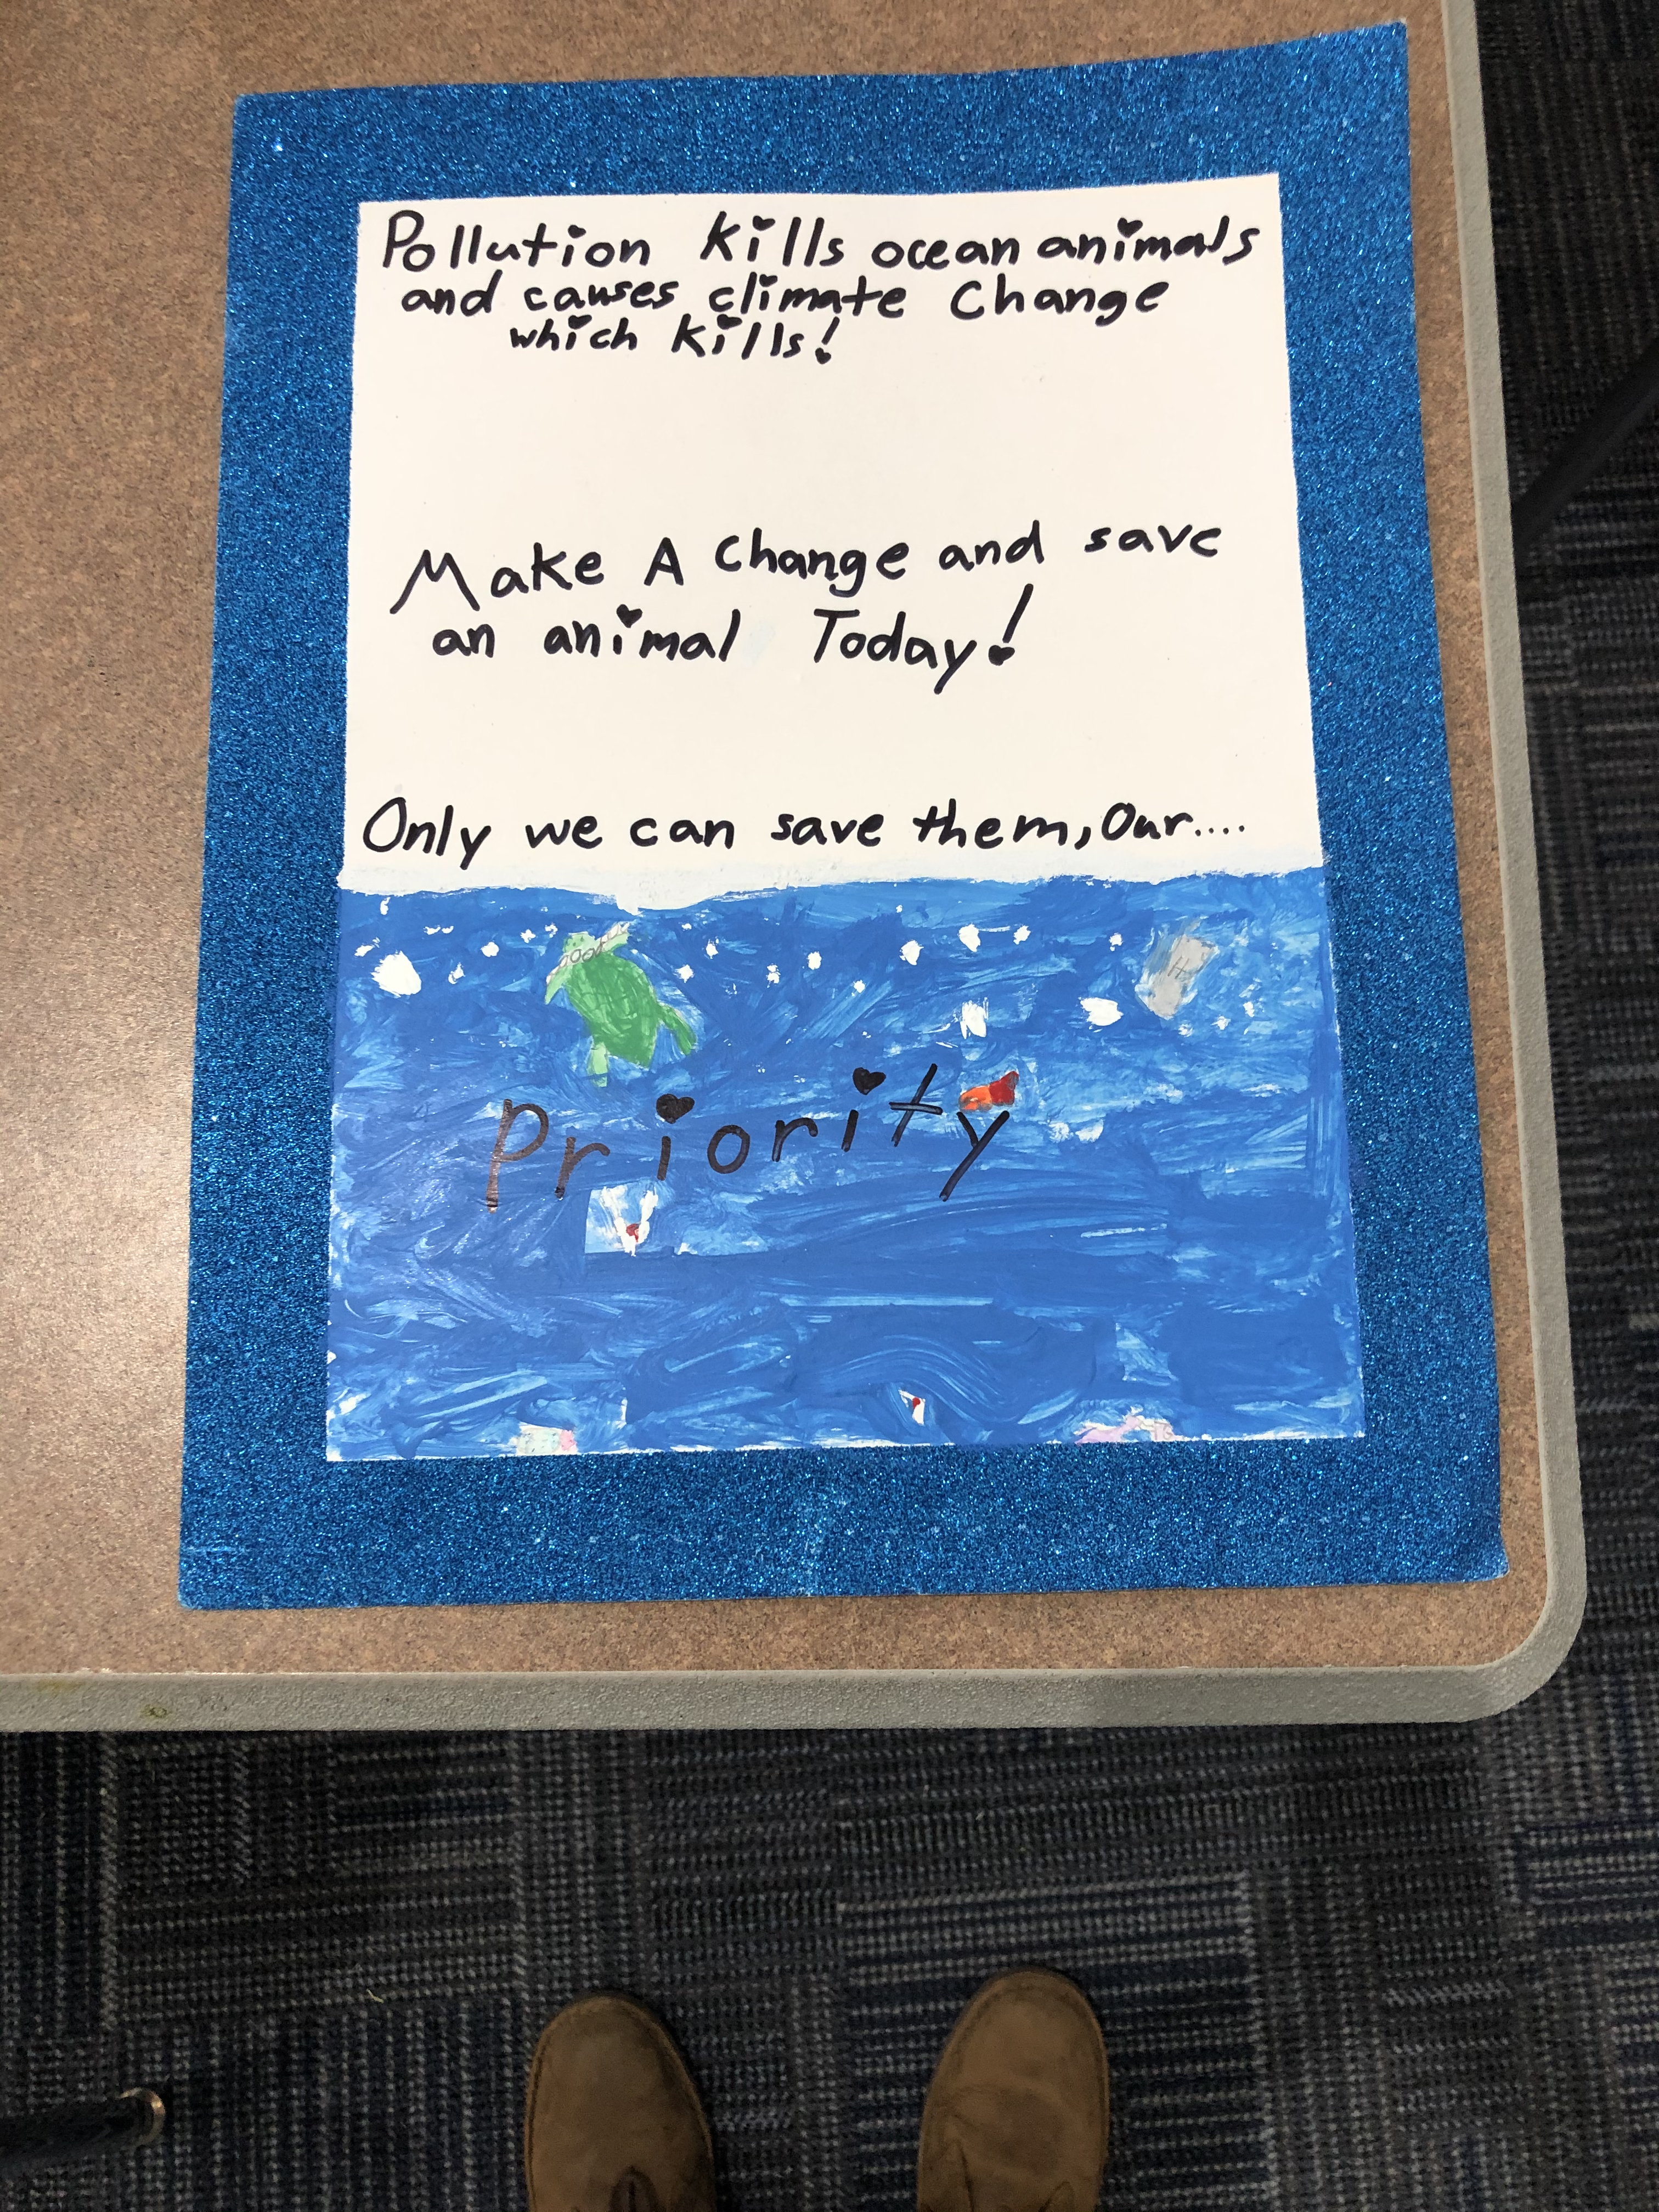 Pollution Kills ocean animals
and causes climate Change
which kills!
Make A Change and save
an animal Today!
Only we can save them, Our....
Priority